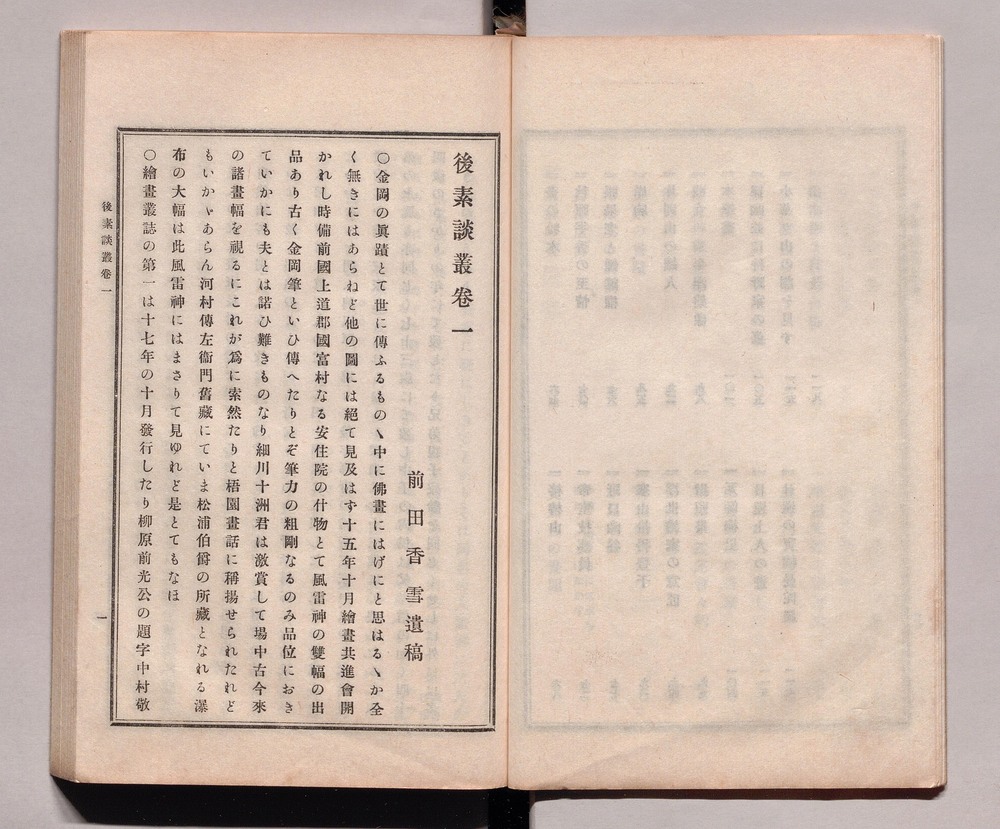 後素談叢卷一
前田香雪遺稿
〇金岡の眞蹟とて世に傳ふるものゝ中に佛畫にはげにと思はるゝか全
く無きにはあらねど他の圖には絕て見及はす十五年十月繪畫共進會開
かれし時備前國上道郡國富村なる安住院の什物とて風雷神の雙幅の出
品あり古く金岡筆といひ傳へたりとぞ筆力の粗剛なるのみ品位におき
ていかにも夫とは諾ひ難きものなり細川十洲君は激賞して場中古今來
の諸畫幅を視るにこれが爲に索然たりと梧園畫話に稱揚せられたれど
もいかゞあらん河村傳左衞門舊藏にていま松浦伯爵の所藏となれる瀑
布の大幅は此風雷神にはまさりて見ゆれど是とてもなほ
〇繪畫叢誌の第一は十七年の十月發行したり柳原前光公の題字中村敬
後素談叢卷一
一